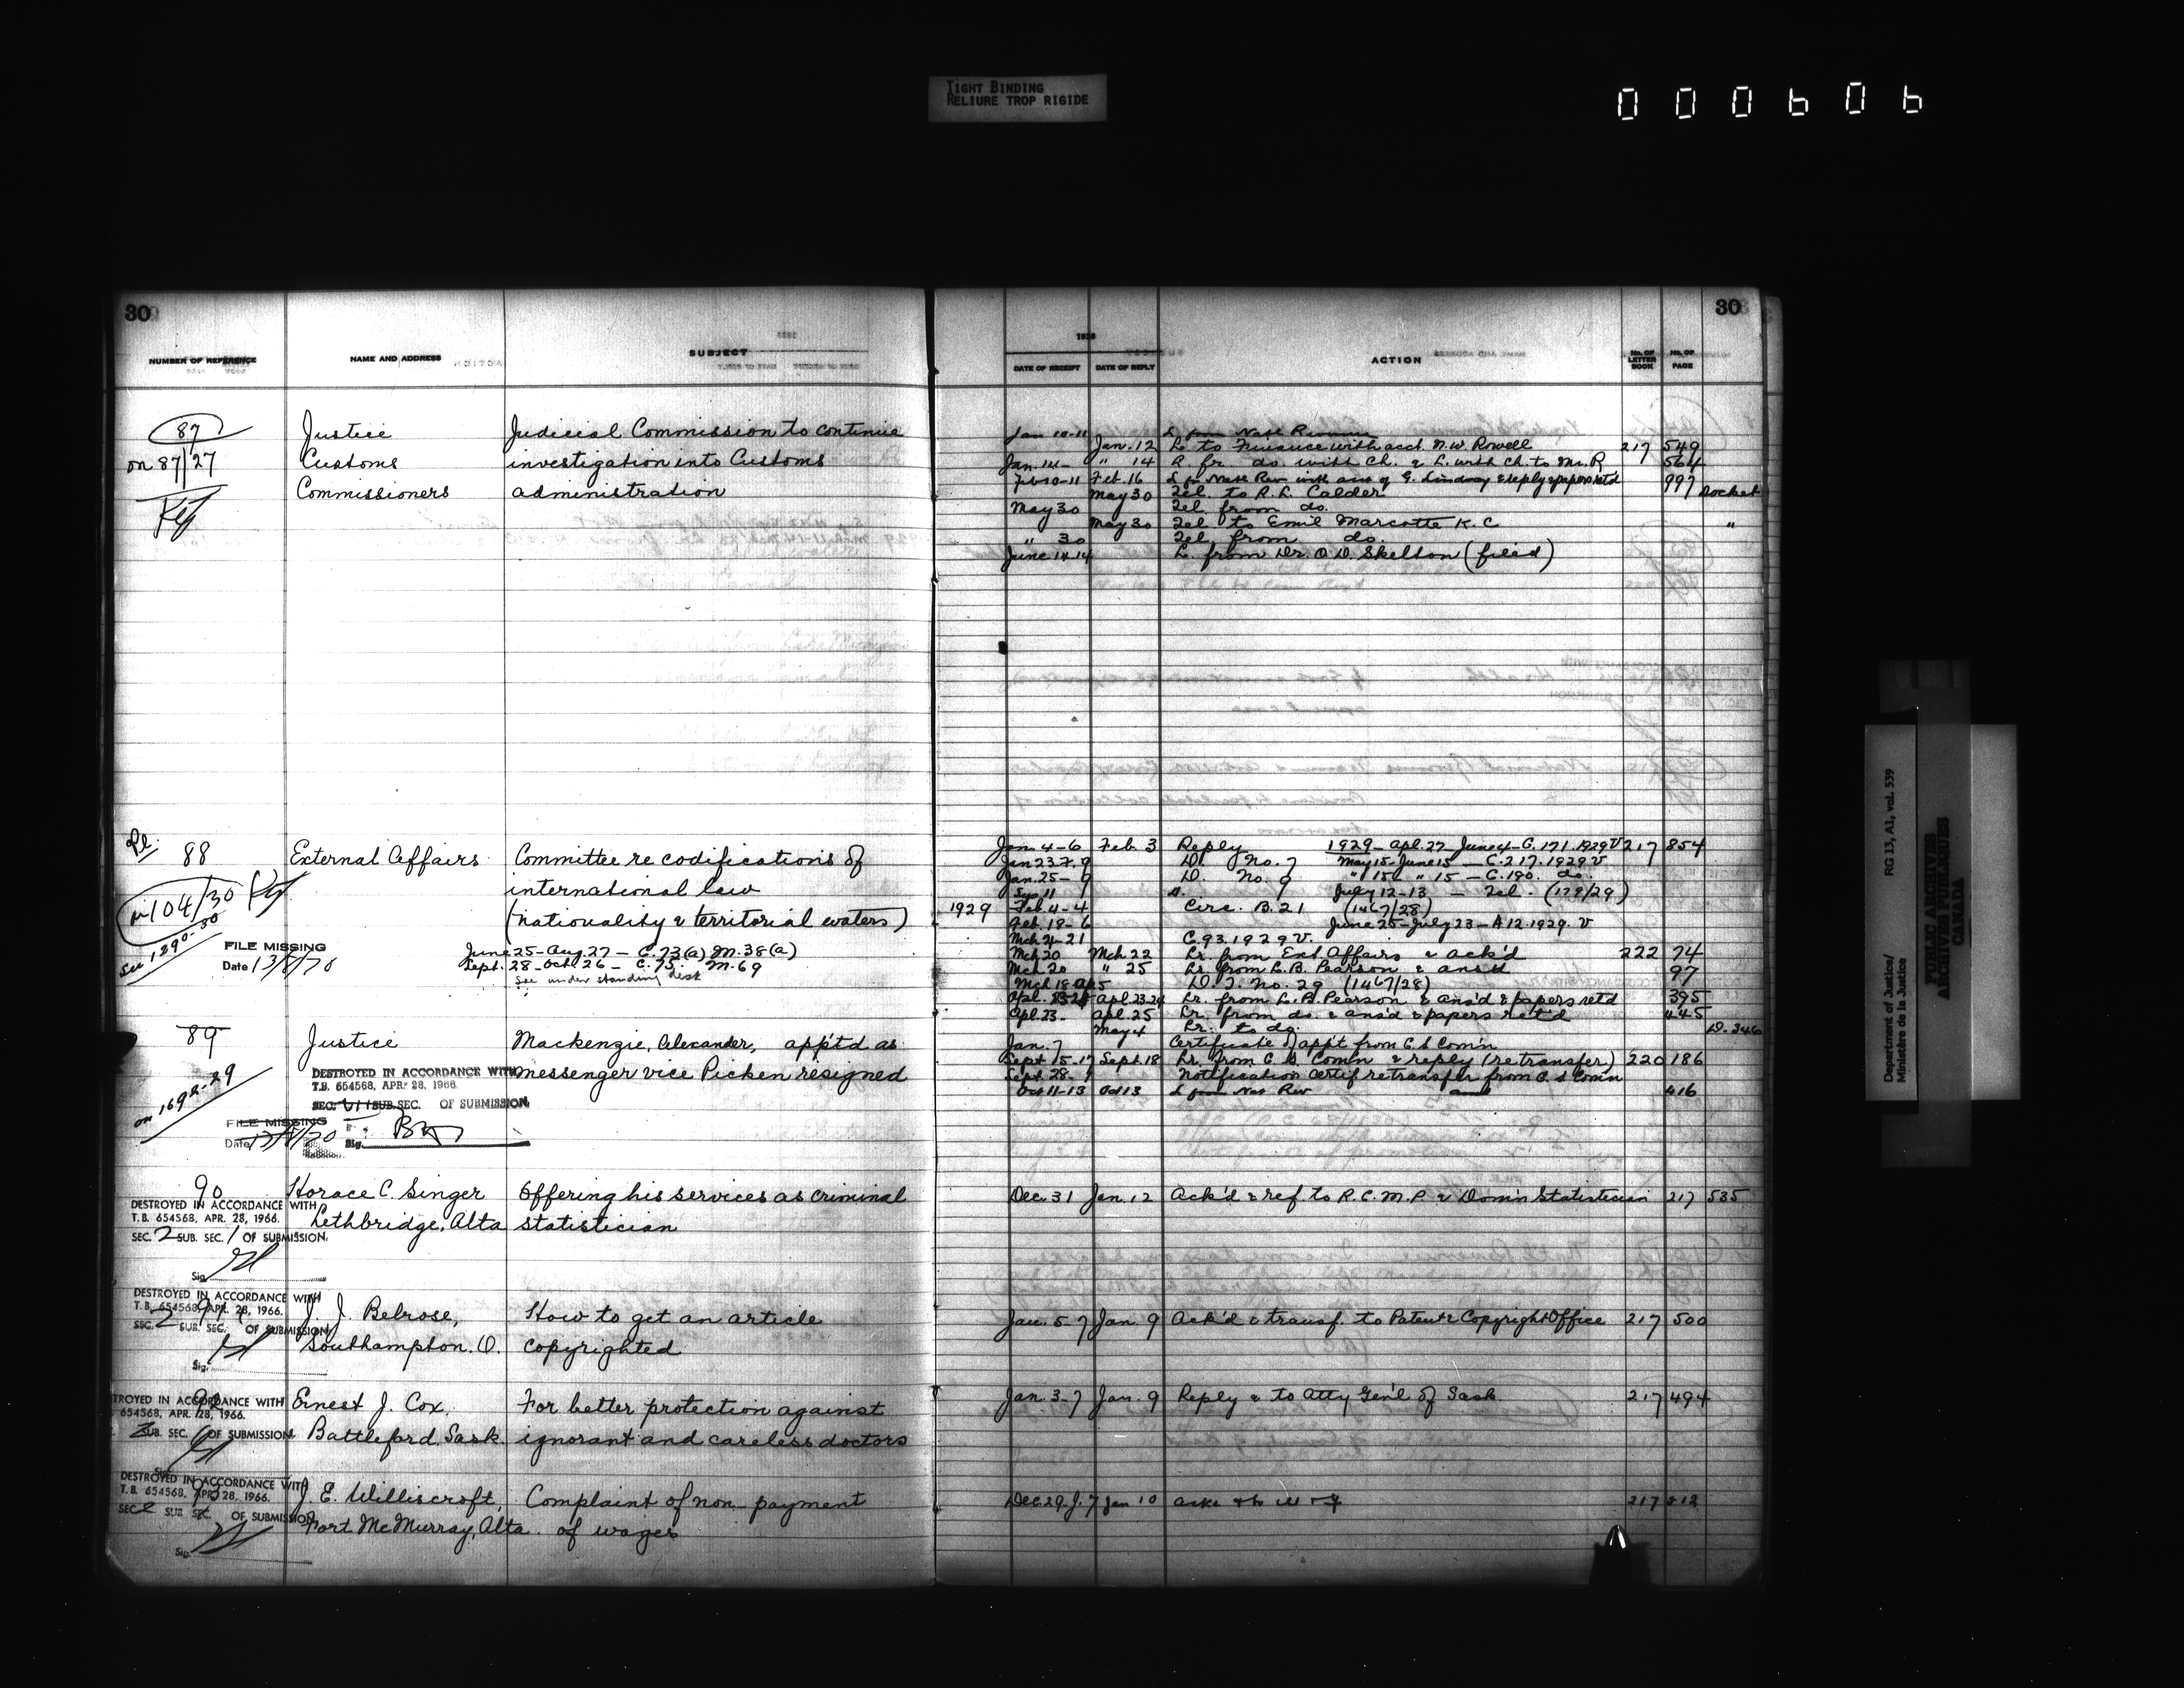 TIGHT BINDING
RELIURE TROP RIGIDE
000606
30
30
NUMBER OF REFERENCE
NAME AND ADDRESS
SUBJECT
1928
DATE OF RECEIPT
DATE OF REPLY
ACTION
No. OF LETTER BOOK
No. OF PAGE
87
on 87/27
Justice
Customs
Commissioners
Judicial Commission to continue
investigation into Customs
administration
Jan 10-11 L from Natl Revenue
Jan. 12 L. to Finance with acct. N.W. Rowell 217 549
Jan. 14- " 14 L. fr. do. with ch. & L. with ch. to Mr. R 564
Feb 10-11 Feb. 16 L fr Natl Rev with acct of G. Lindsay & reply & papers retd 997
May 30 Tel. to R. L. Calder Docket
May 30 Tel. from do.
May 30 Tel. to Emil Marcotte K.C "
" 30 Tel. from do.
June 14-14 L. from Dr. O. D. Skelton (filed)
88
in 104/30
See 1290-30
FILE MISSING
Date 13/8/70
External Affairs
Committee re codifications of
international law
(nationality & territorial waters)
June 25-Aug. 27 - C. 73(a) M. 38(a)
Sept. 28-Oct. 26 - C. 75. M. 69
See under standing desk
Jan. 4-6 Feb. 3 Reply 1929 - Apl. 27 - June 4 - C. 171. 1929 V 217 854
Jan 23.7.9 D. No. 7 May 15 - June 15 - C. 217. 1929. V
Jan. 25- 9 D. No. 9 " 15 " 15 - C. 190. do.
July 12-13 - Tel. (179/29)
1929 Feb. 4-4 Circ. B. 21 (1467/28)
Feb. 18-6 June 25 - July 23 - A 12. 1929. V
Mch 4-21 C. 93. 1929 V.
Mch 20 Mch. 22 Lr. from Ext Affairs & ack'd 222 74
Mch 20 " 25 Lr. from L. B. Pearson & ansd 97
Mch 18-Ap 5 D. J. No. 29 (1467/28)
Apl. 23-24 Lr. from L. B. Pearson & ans'd & papers retd 395
Apl. 23- Apl. 25 Lr. from do. & ans'd & papers ret'd 445
May 4 Lr. to do. D. 346
89
on 1692-29
Justice
Mackenzie, Alexander, app'td as
messenger vice Picken resigned
DESTROYED IN ACCORDANCE WITH
T.B. 654568, APR. 28, 1966.
SEC. SUB. SEC. OF SUBMISSION
Sig.
FILE MISSING
Date
Jan. 7 Certificate of app't from C. S Com'n
Sept 15-17 Sept. 18 Lr. from C. S. Com'n & reply (re transfer) 220 186
Sept. 28- Notification certif re transfer from C. S Comn
Oct 11-13 Oct 13 L from Nat Rev 416
90
DESTROYED IN ACCORDANCE WITH
T.B. 654568, APR. 28, 1966.
SEC. 2 SUB. SEC. 1 OF SUBMISSION.
Sig.
Horace C. Singer
Lethbridge, Alta
Offering his services as criminal
statistician
Dec. 31 Jan. 12 Ack'd & ref. to R. C. M. P. & Domin Statistician 217 535
91
DESTROYED IN ACCORDANCE WITH
T.B. 654568, APR. 28, 1966.
SEC. 2 SUB. SEC. OF SUBMISSION
Sig.
J. J. Belrose,
Southampton. O.
How to get an article
copyrighted
Jan. 5-7 Jan. 9 Ack'd & transf. to Patent & Copyright Office 217 500
92
TROYED IN ACCORDANCE WITH
654568, APR. 28, 1966.
SUB. SEC. OF SUBMISSION
Sig.
Ernest J. Cox,
Battleford, Sask.
For better protection against
ignorant and careless doctors
Jan. 3-7 Jan. 9 Reply & to Atty Gen'l of Sask 217 494
93
DESTROYED IN ACCORDANCE WITH
T.B. 654568, APR. 28, 1966.
SEC SUB SEC. OF SUBMISSION
Sig.
J. E. Williscroft,
Fort McMurray, Alta.
Complaint of non-payment
of wages
Dec. 29. J. 7 Jan 10 217 512
Department of Justice/
Ministère de la Justice
RG 13, A1, vol. 539
PUBLIC ARCHIVES
ARCHIVES PUBLIQUES
CANADA